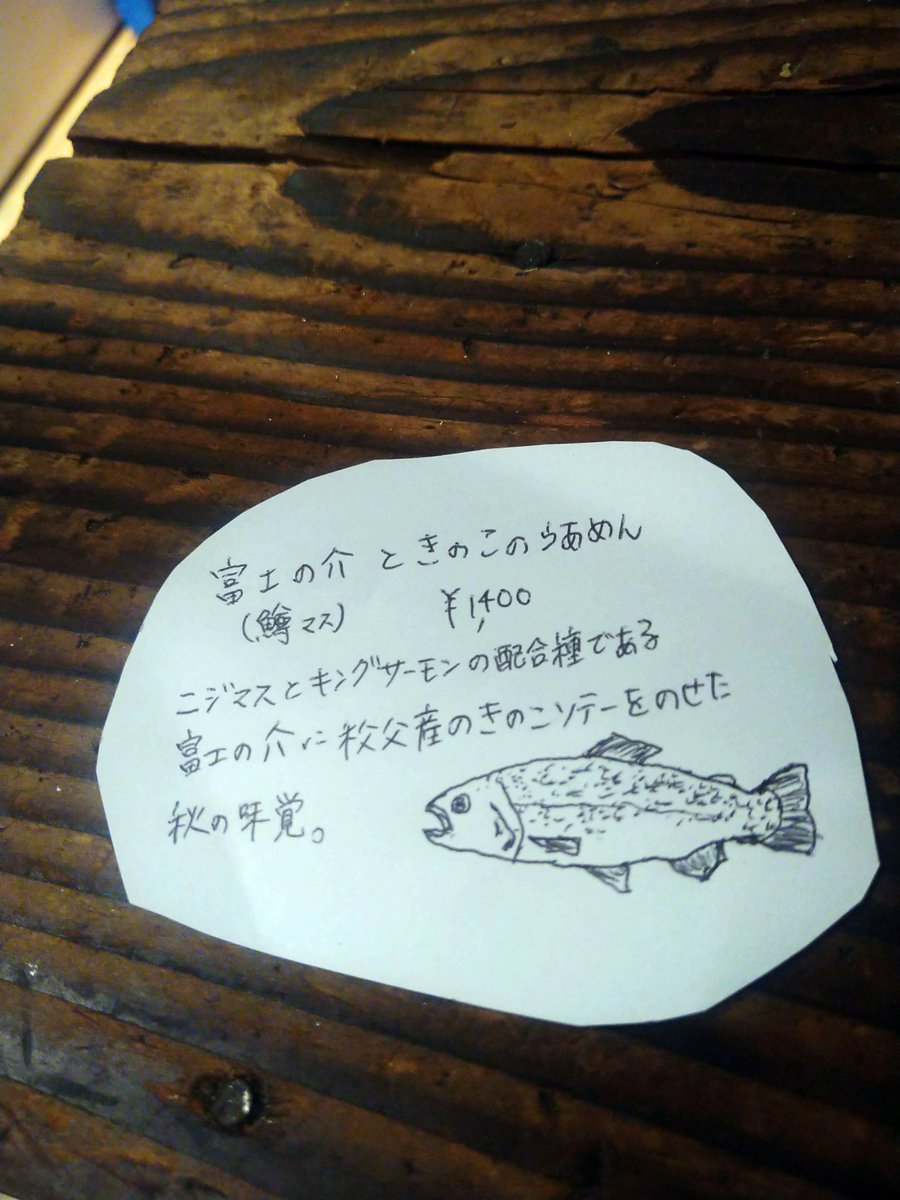 富士の介 ときのこのらあめん
(鱒マス) ¥1,400
ニジマスとキングサーモンの配合種である
富士の介に秩父産のきのこソテーをのせた
秋の味覚。